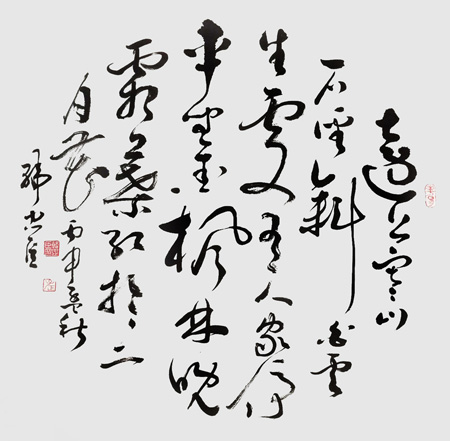 遠上寒山
石徑斜白雲
生處有人家停
車坐愛楓林晚
霜葉紅於二
月花丙申孟秋